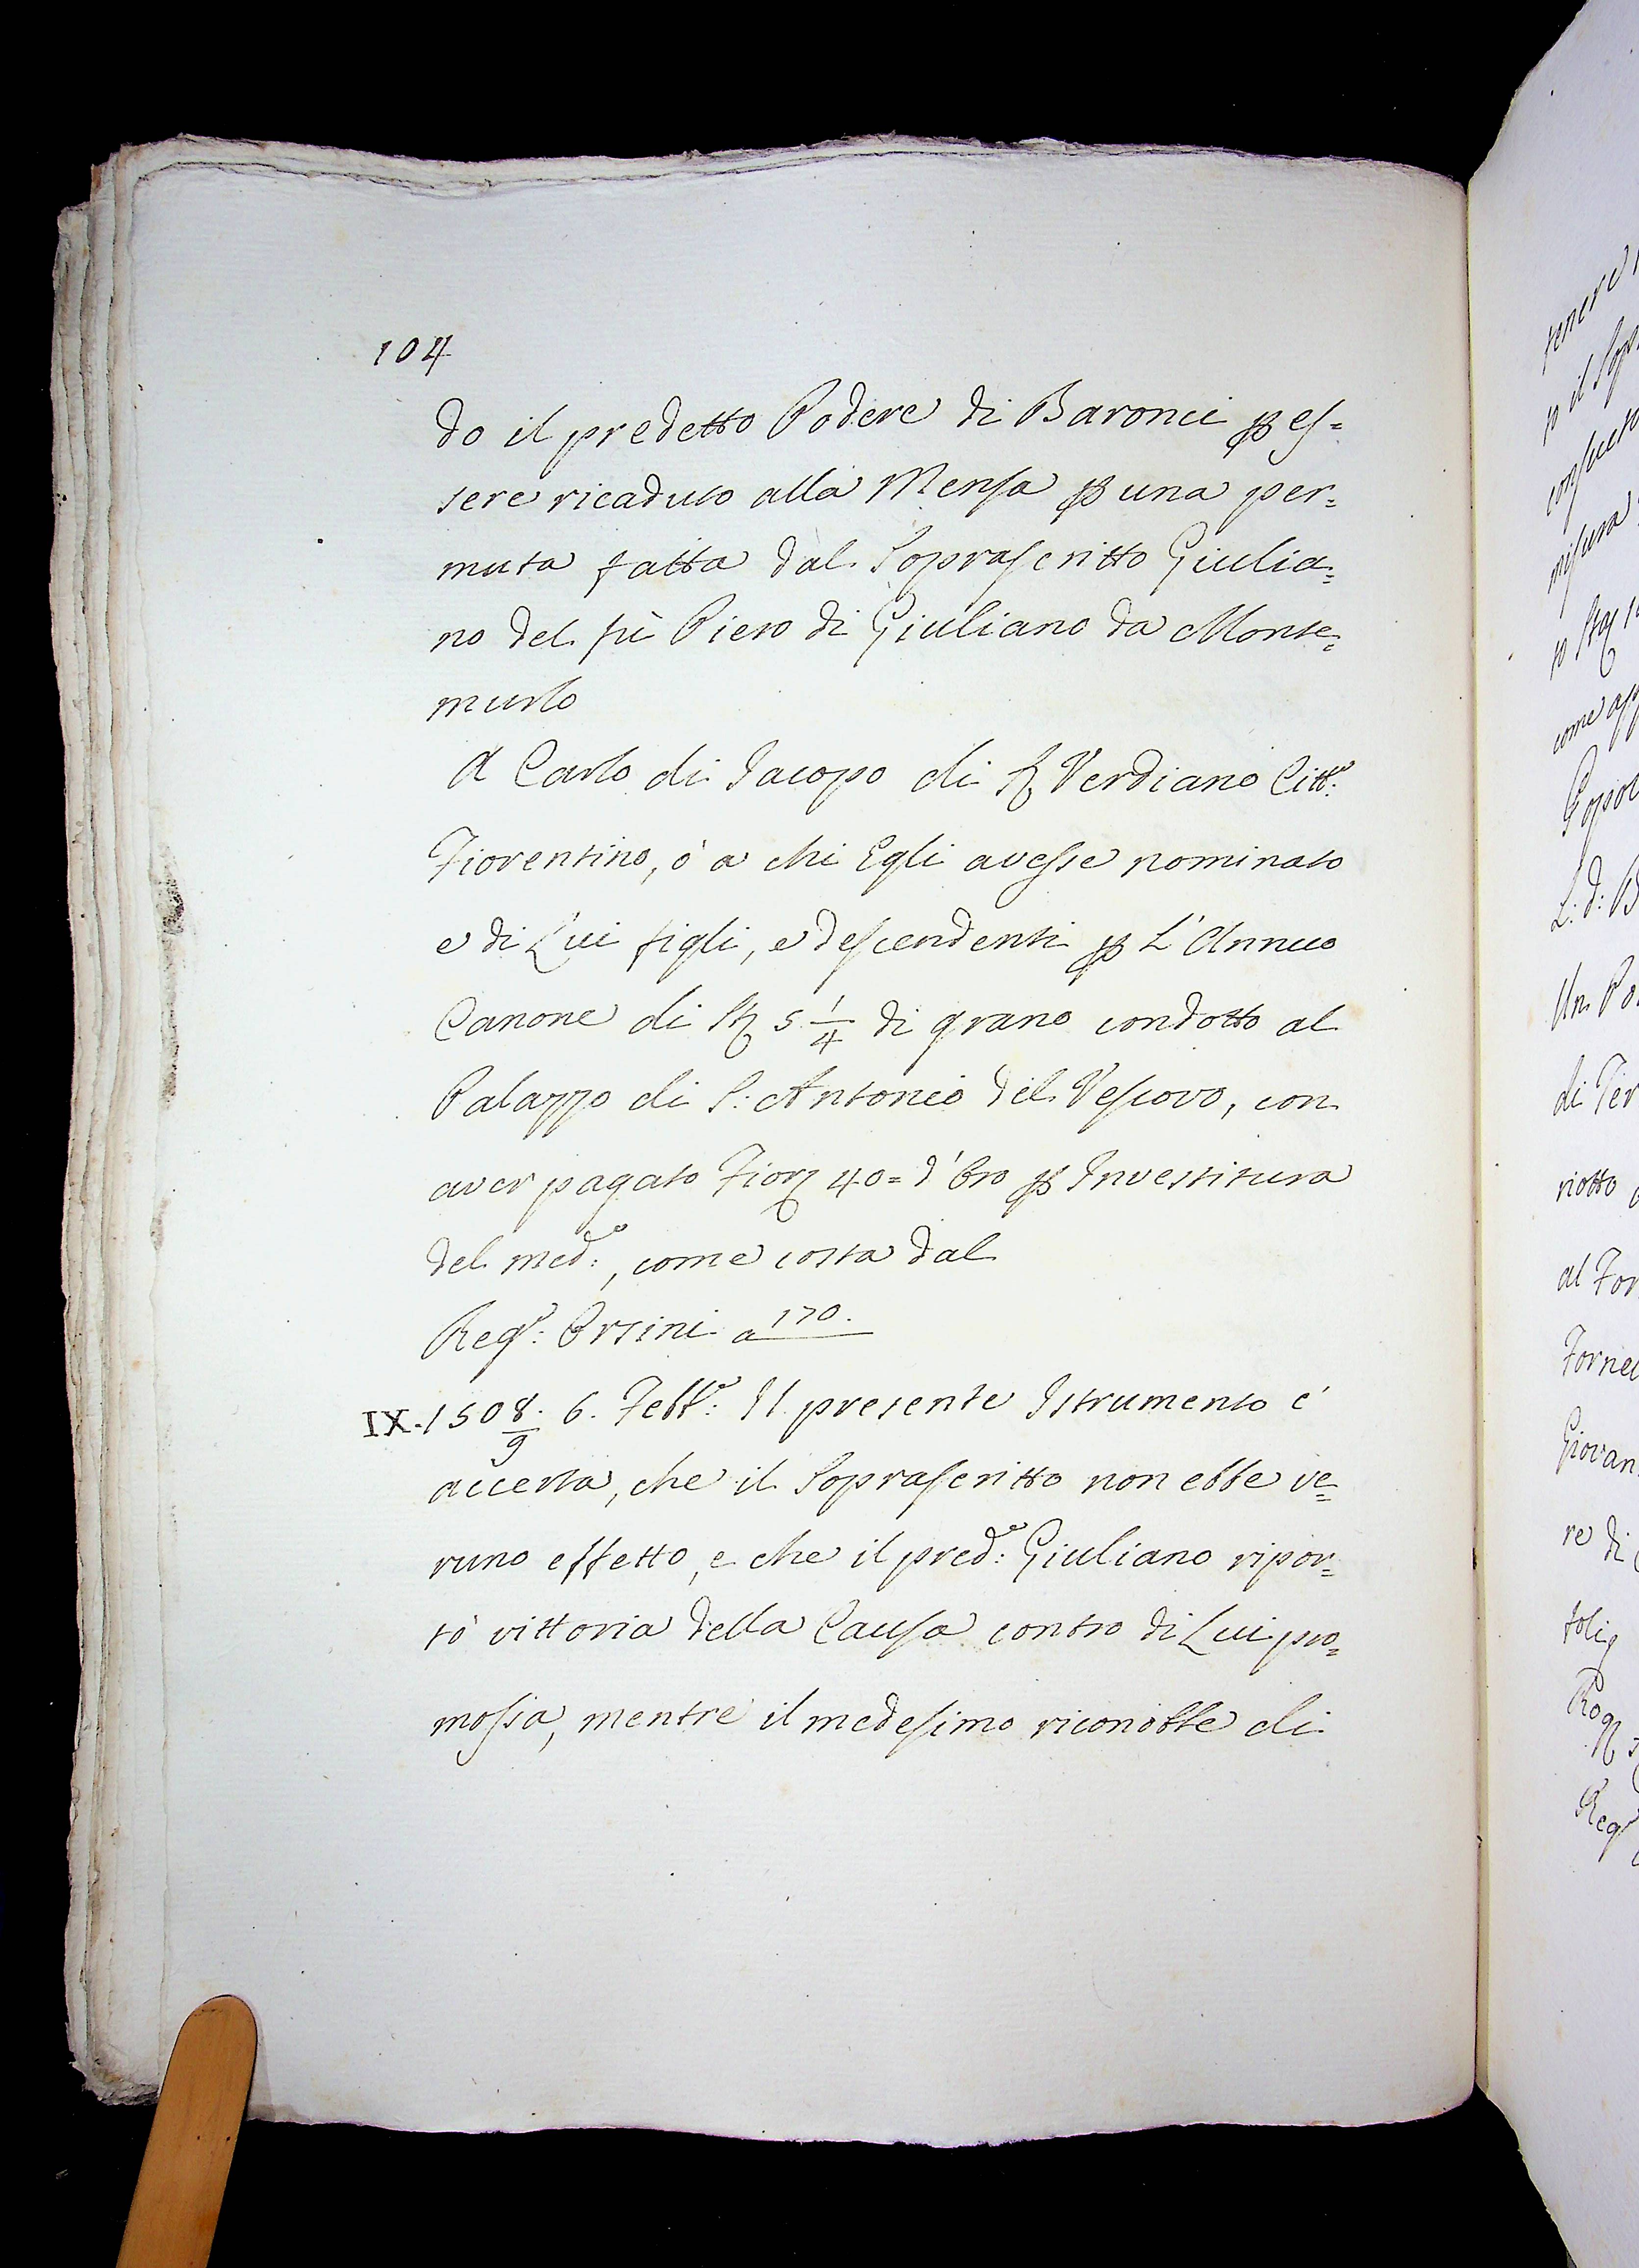 104
do il predetto Podere di Baronci ꝑ es=
sere ricaduto alla Mensa ꝑ una per=
muta fatta dal Soprascritto Giulia=
no del fù Piero di Giuliano da Monte=
murlo
A Carlo di Jacopo di Sr Verdiano Citt.º
Fiorentino, ò a chi Egli avesse nominato
e di Lui figli, e descendenti ꝑ L'Annuo
Canone di St 5 1/4 di grano condotto al
Palazzo di S: Antonio del Vescovo, con
aver pagato Fior 40= d'Oro ꝑ Investitura
del med.º, come costa dal
Reg.º: Orsini a 170.
IX. 1508/9. 6. Febb.º: Il presente Istrumento è
accerta, che il Soprascritto non ebbe ve=
runo effetto, e che il pred.º: Giuliano ripor=
tò vittoria della Causa contro di Lui pro=
mossa, mentre il medesimo riconobbe di
tenere
to il Sop
consuet
misura
to Sta
come ap
Popol
L: d: B
Un Po
di Ter
riotto
al For
Fornel
Giovan
re di
Rog
Reg